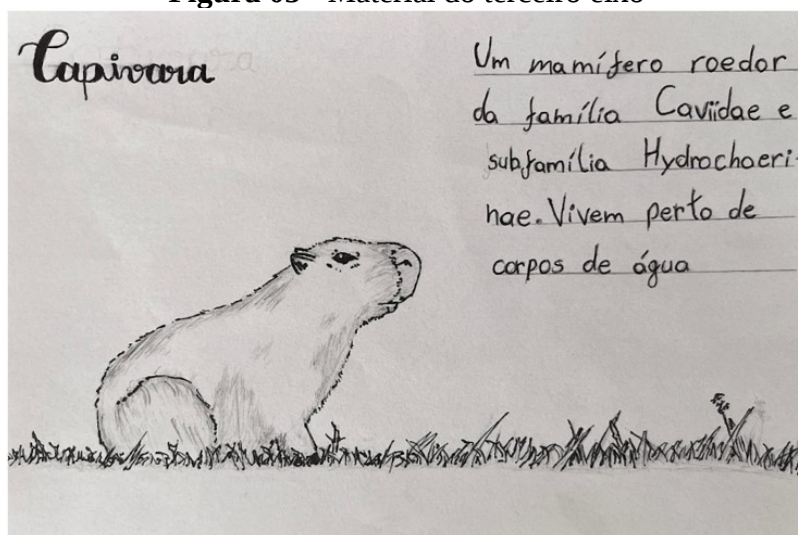 Figura 03 - Material do terceiro elno
Capivara
Um mamífero roedor
da família Caviidae e
subfamília Hydrochoeri-
nae. Vivem perto de
corpos de água